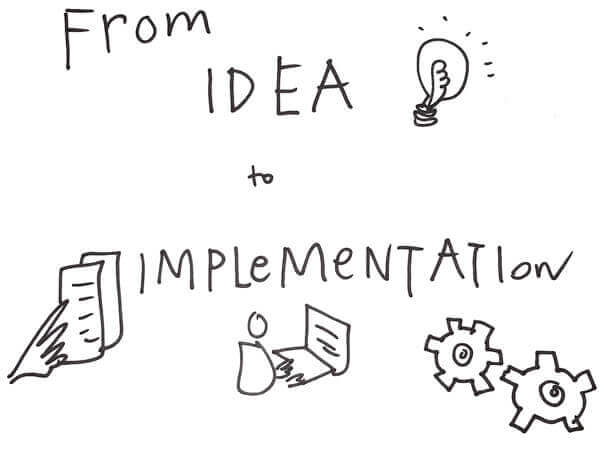 From
IDEA
to
IMPLeMeNTATIoN